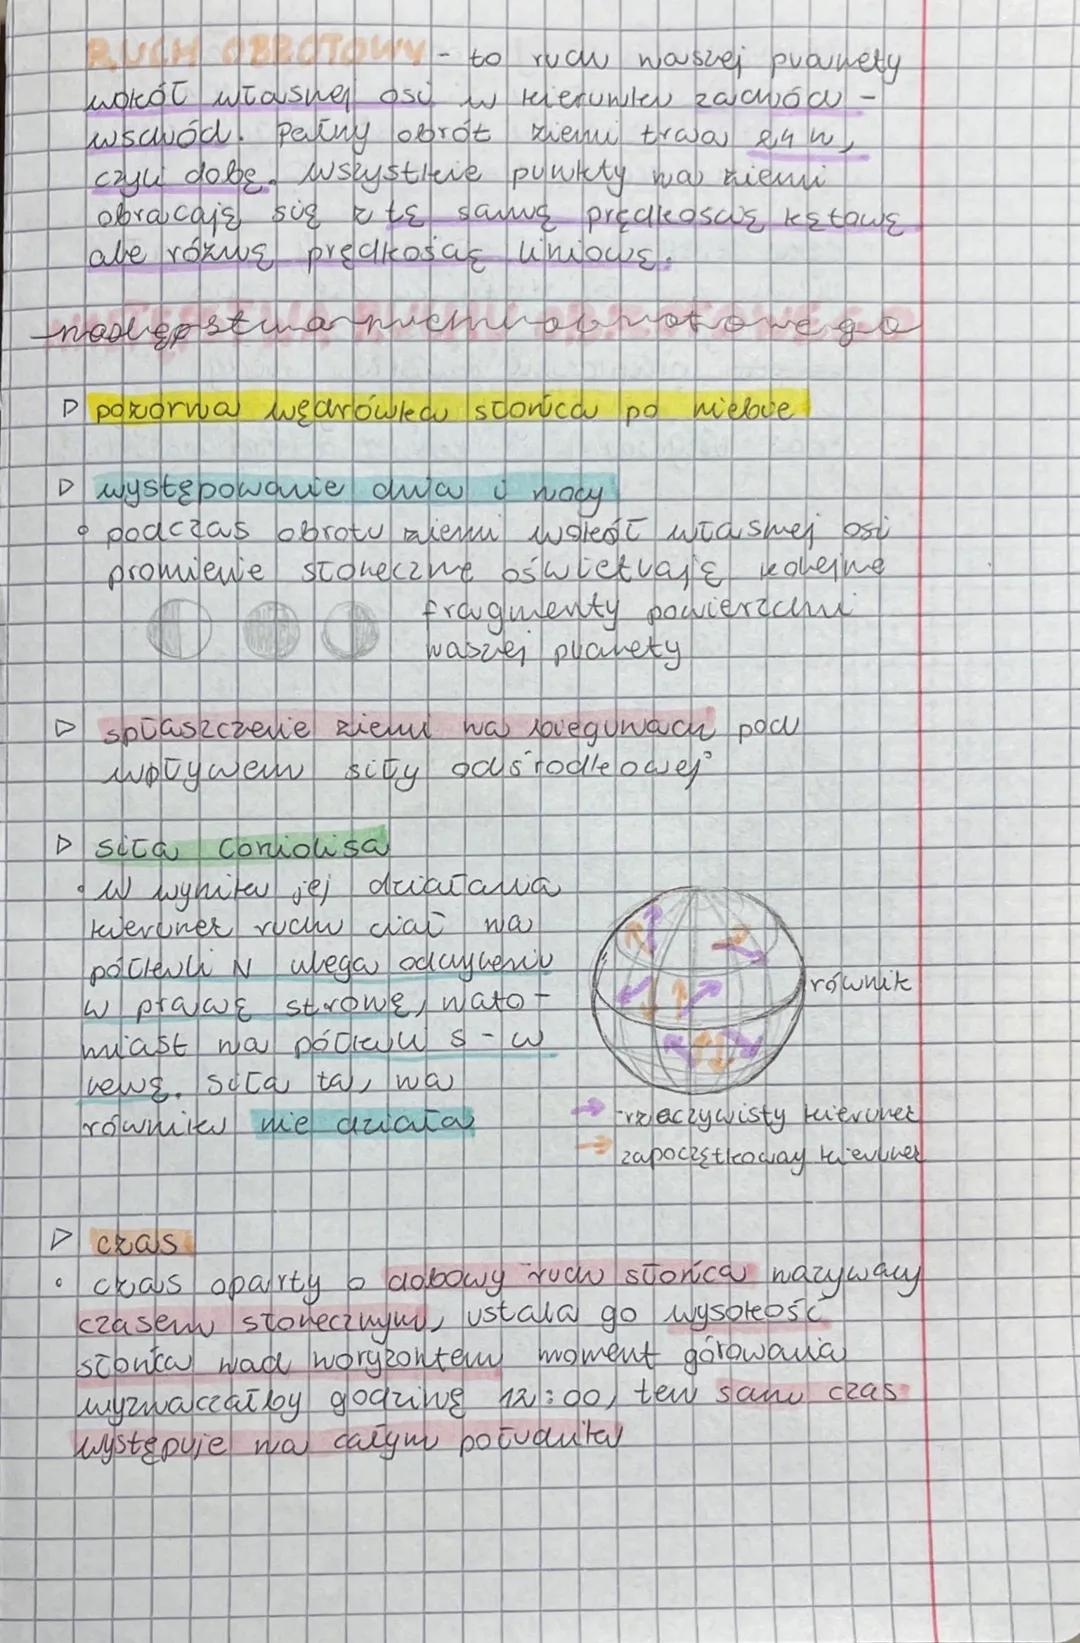 RUCH OBROTOWY - to ruch naszej planety
wokół własnej osi w kierunku zachód -
wschód. Pełny obrót ziemi trwa 24 h,
czyli dobę. Wszystkie punkty na ziemi
obracają się z tą samą prędkością kątową
ale różną prędkością liniową.
następstwa ruchu obrotowego
▷ pozorna wędrówka słońca po niebie
▷ występowanie dnia i nocy
• podczas obrotu ziemi wokół własnej osi
promienie słoneczne oświetlają kolejne
fragmenty powierzchni
naszej planety
▷ spłaszczenie ziemi na biegunach pod
wpływem siły odśrodkowej
▷ siła Coriolisa
• w wyniku jej działania
kierunek ruchu ciał na
półkuli N ulega odchyleniu
w prawą stronę, nato-
miast na półkuli S - w
lewą. Siła ta, na
równiku nie działa
równik
→ rzeczywisty kierunek
→ zapoczątkoway kierunek
▷ czas
• czas oparty o dobowy ruch słońca nazywamy
czasem słonecznym, ustala go wysokość
słońca nad horyzontem moment górowania
wyznaczałby godzinę 12:00, ten sam czas
występuje na całym południku